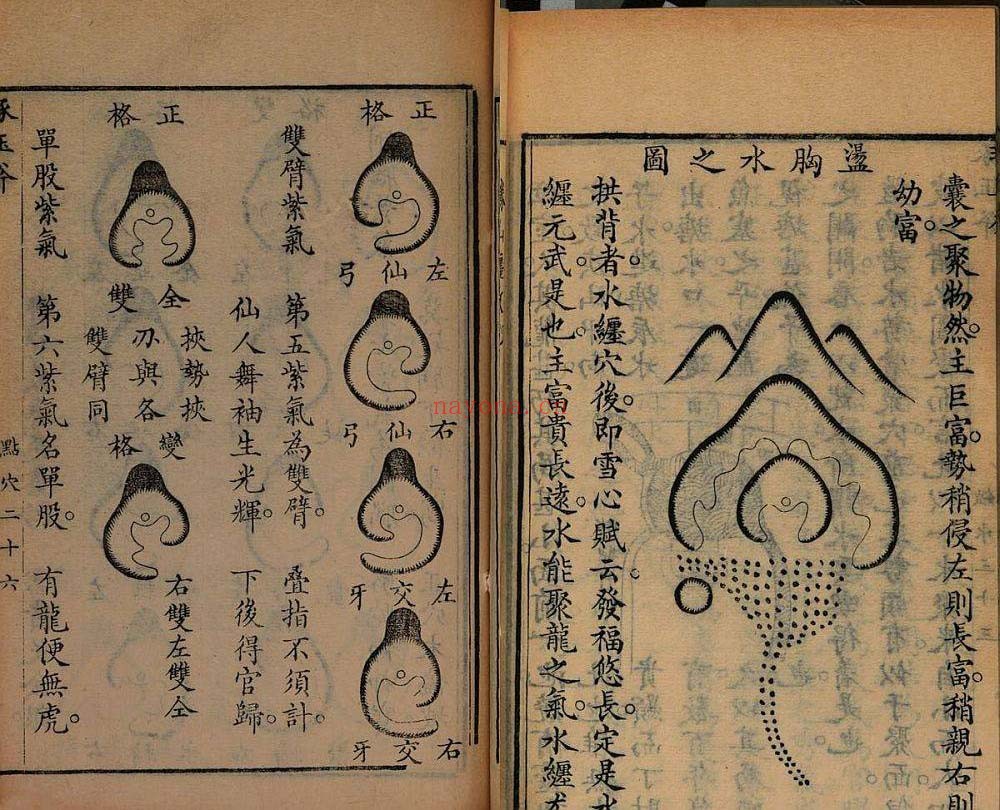 囊之聚物然。主巨富。勢稍侵左則長富。稍親右則
幼富。
盪胸水之圖
拱背者。水纏穴後。即雪心賦云。發福悠長。定是水
纏元武。是也。主富貴長遠。水能聚龍之氣。水纏
正格
左仙弓
右仙弓
左交牙
右交牙
雙臂紫氣 第五紫氣為雙臂。 疊指不須計。
仙人舞袖生光輝。 下後得官歸。
正格
全雙
挾勢挾
刃與各
雙臂同
變格
右雙左雙全
單股紫氣 第六紫氣名單股。 有龍便無虎。
點穴二十六
nayona.cn